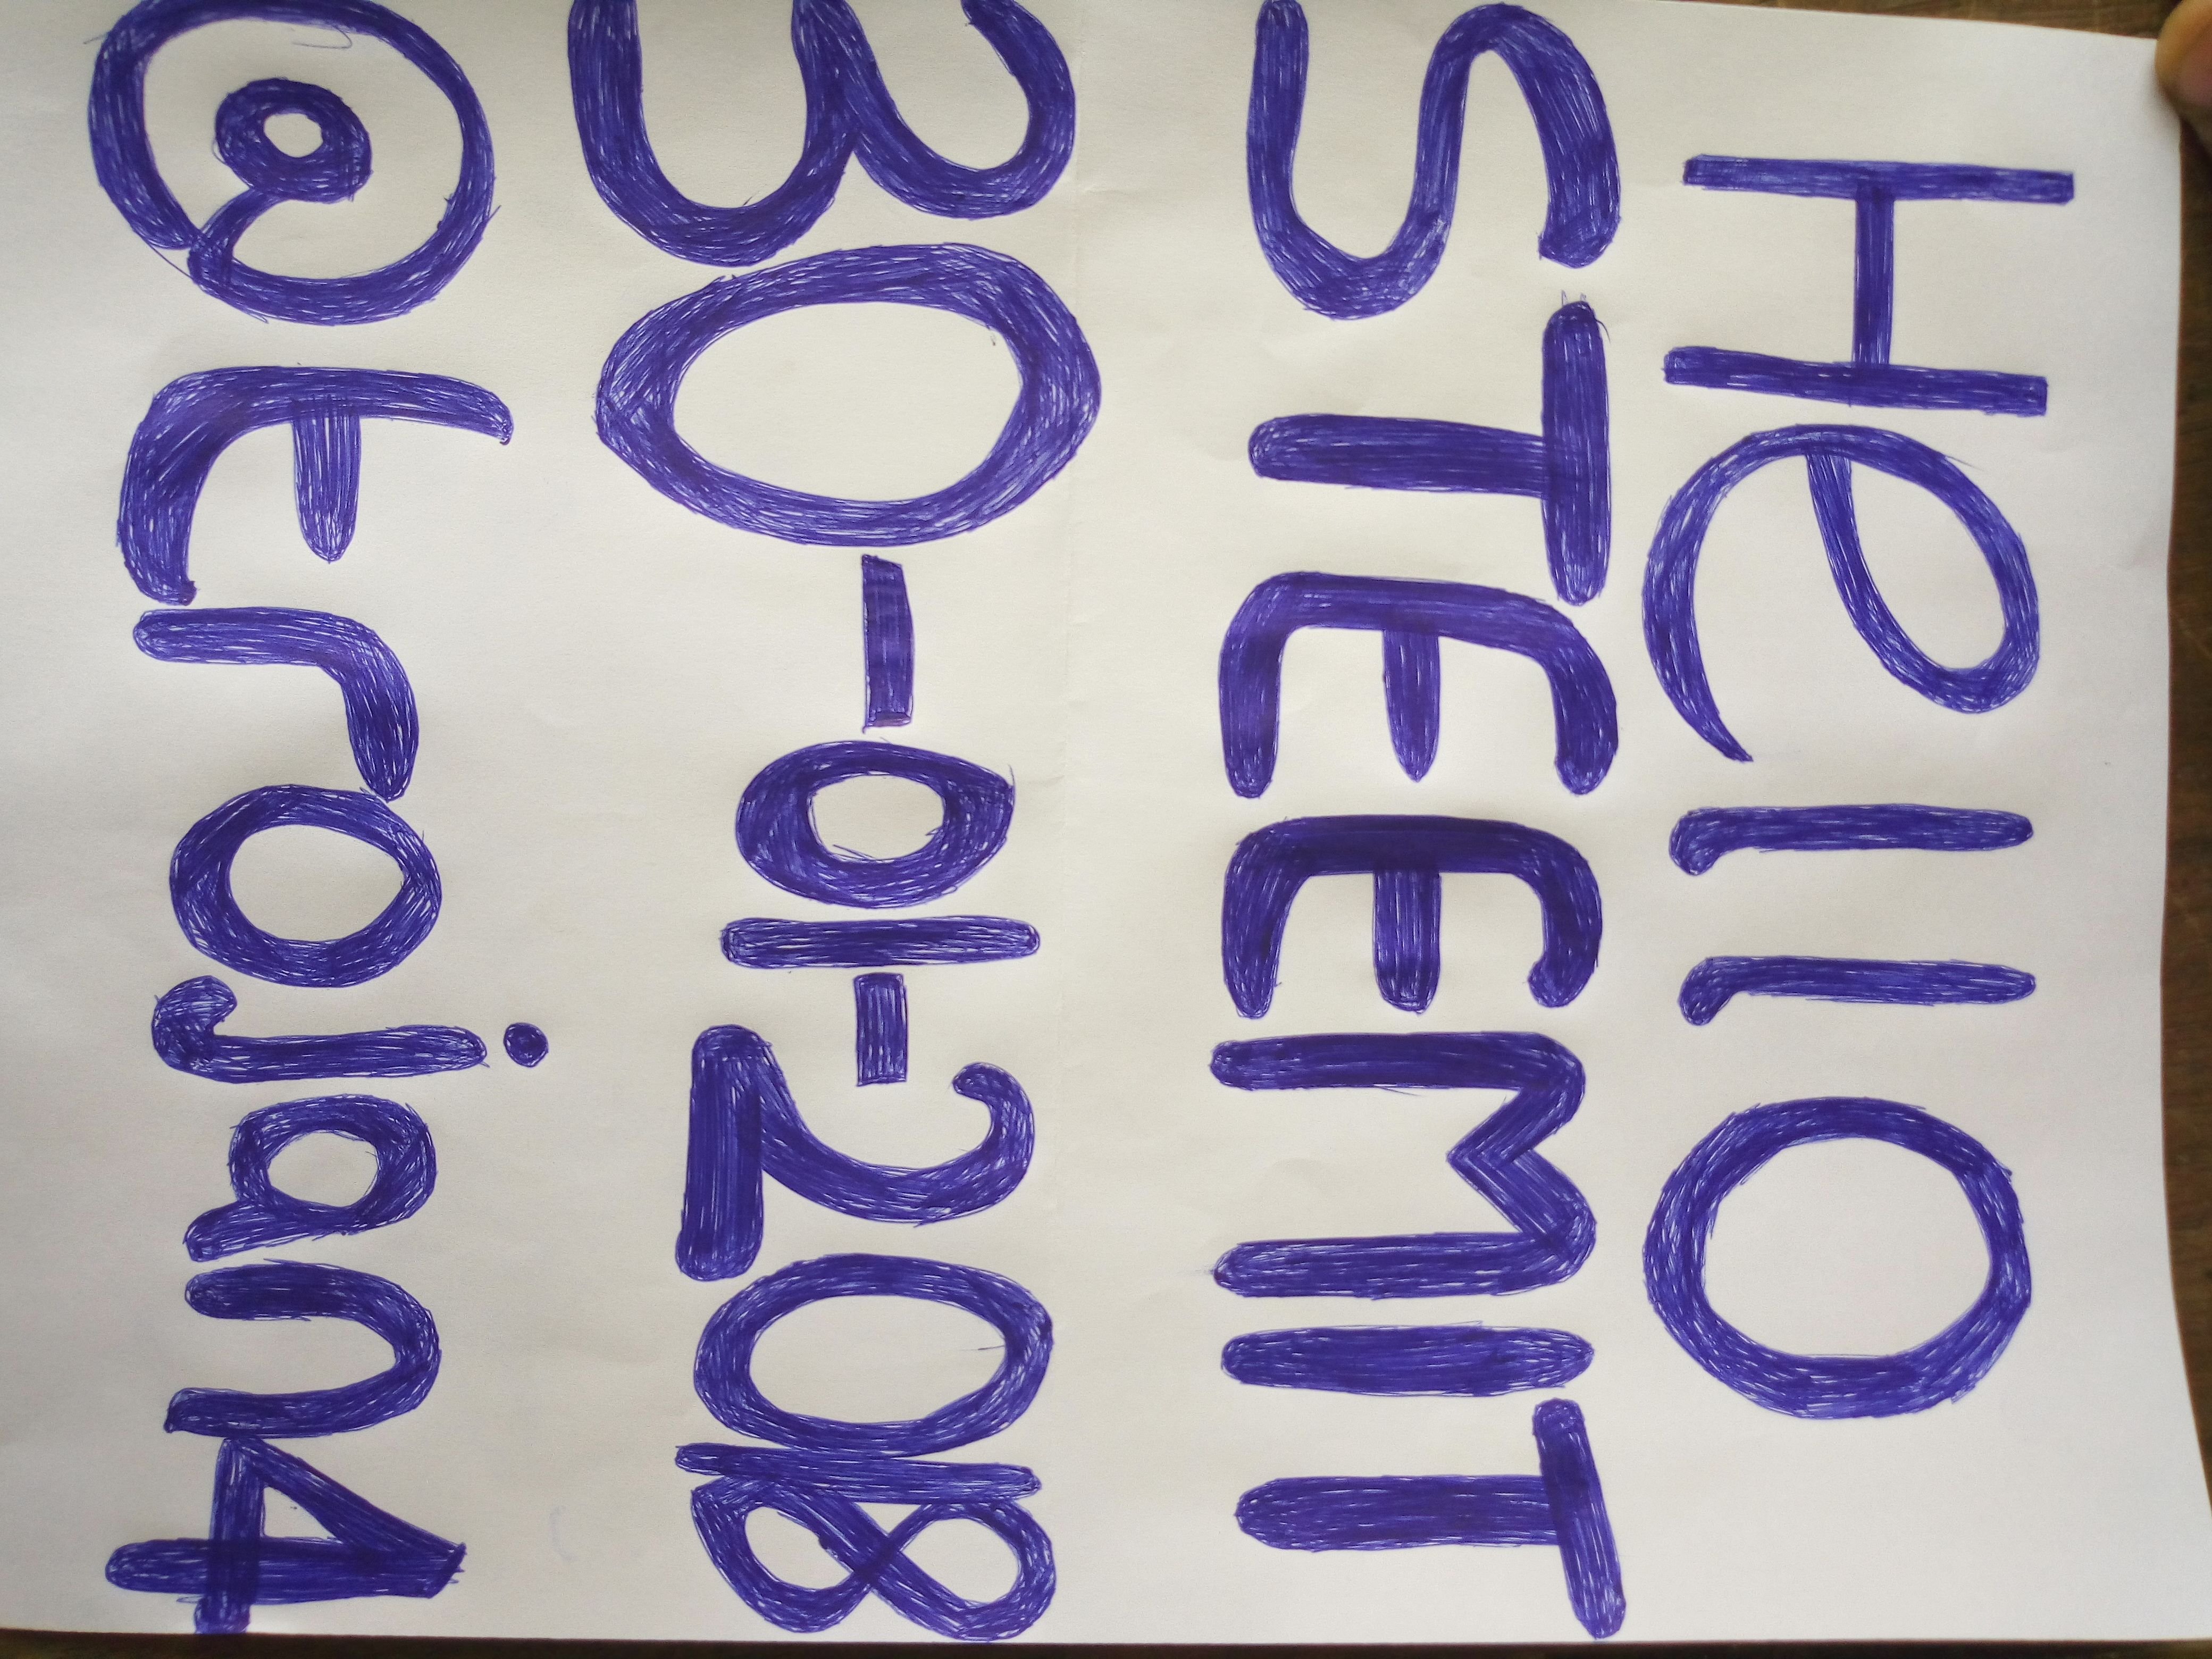 Hello
STEEMIT
30-01-2018
@trojan4